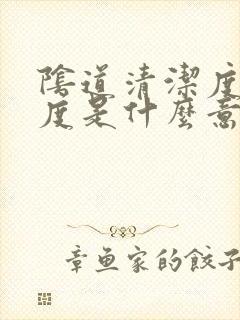 陰道清潔度
度是什麼意
章魚家的餃子